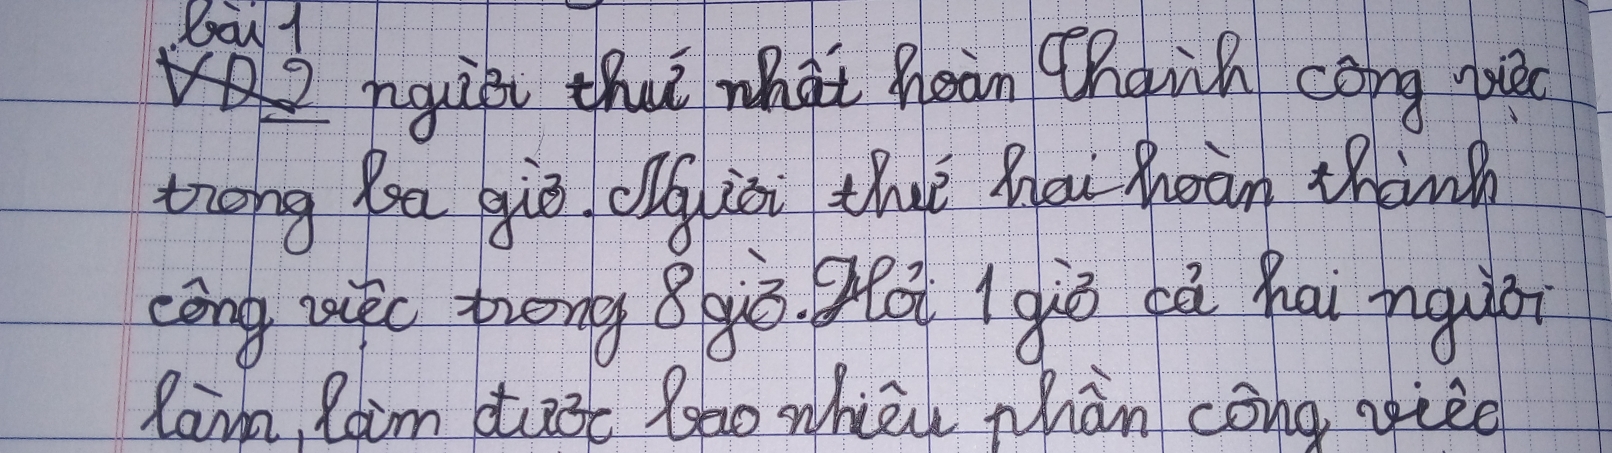 bài 1
VD2 người thứ nhất hoàn Thành công việc
trong ba giờ. Người thứ hai hoàn thành
công việc trong 8 giờ. Hỏi 1 giờ cả hai người
làm, làm được bao nhiêu phần công việc